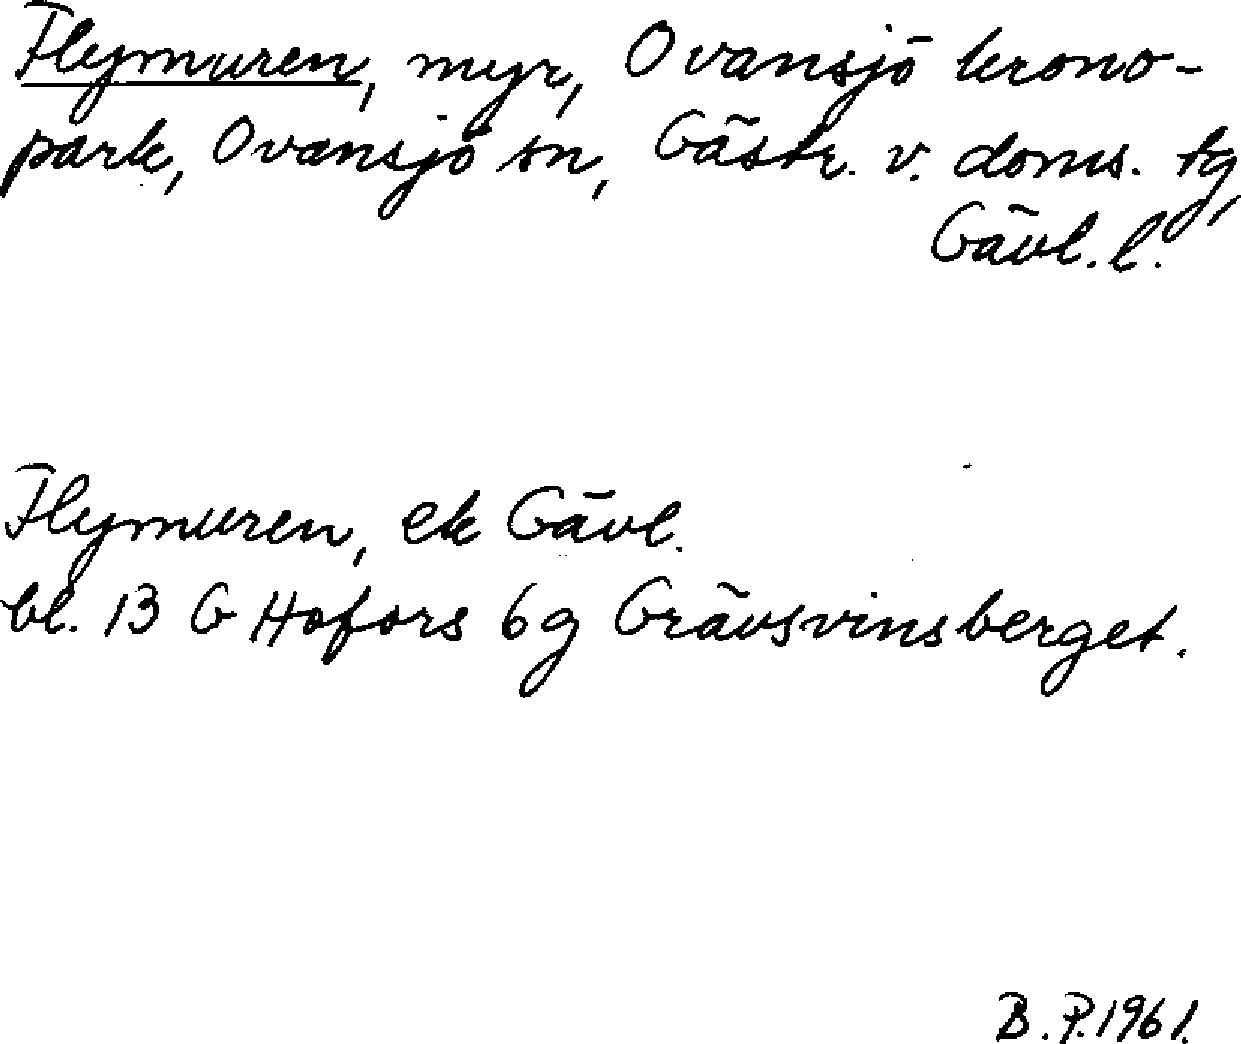 Flymuren, myr, Ovansjö krono-
park, Ovansjö sn, Gästr. v. doms. tg,
Gävl. l.
Flymuren, ek Gävl.
bl. 13 G Hofors 6g Grävsvinsberget.
B. P. 1961.